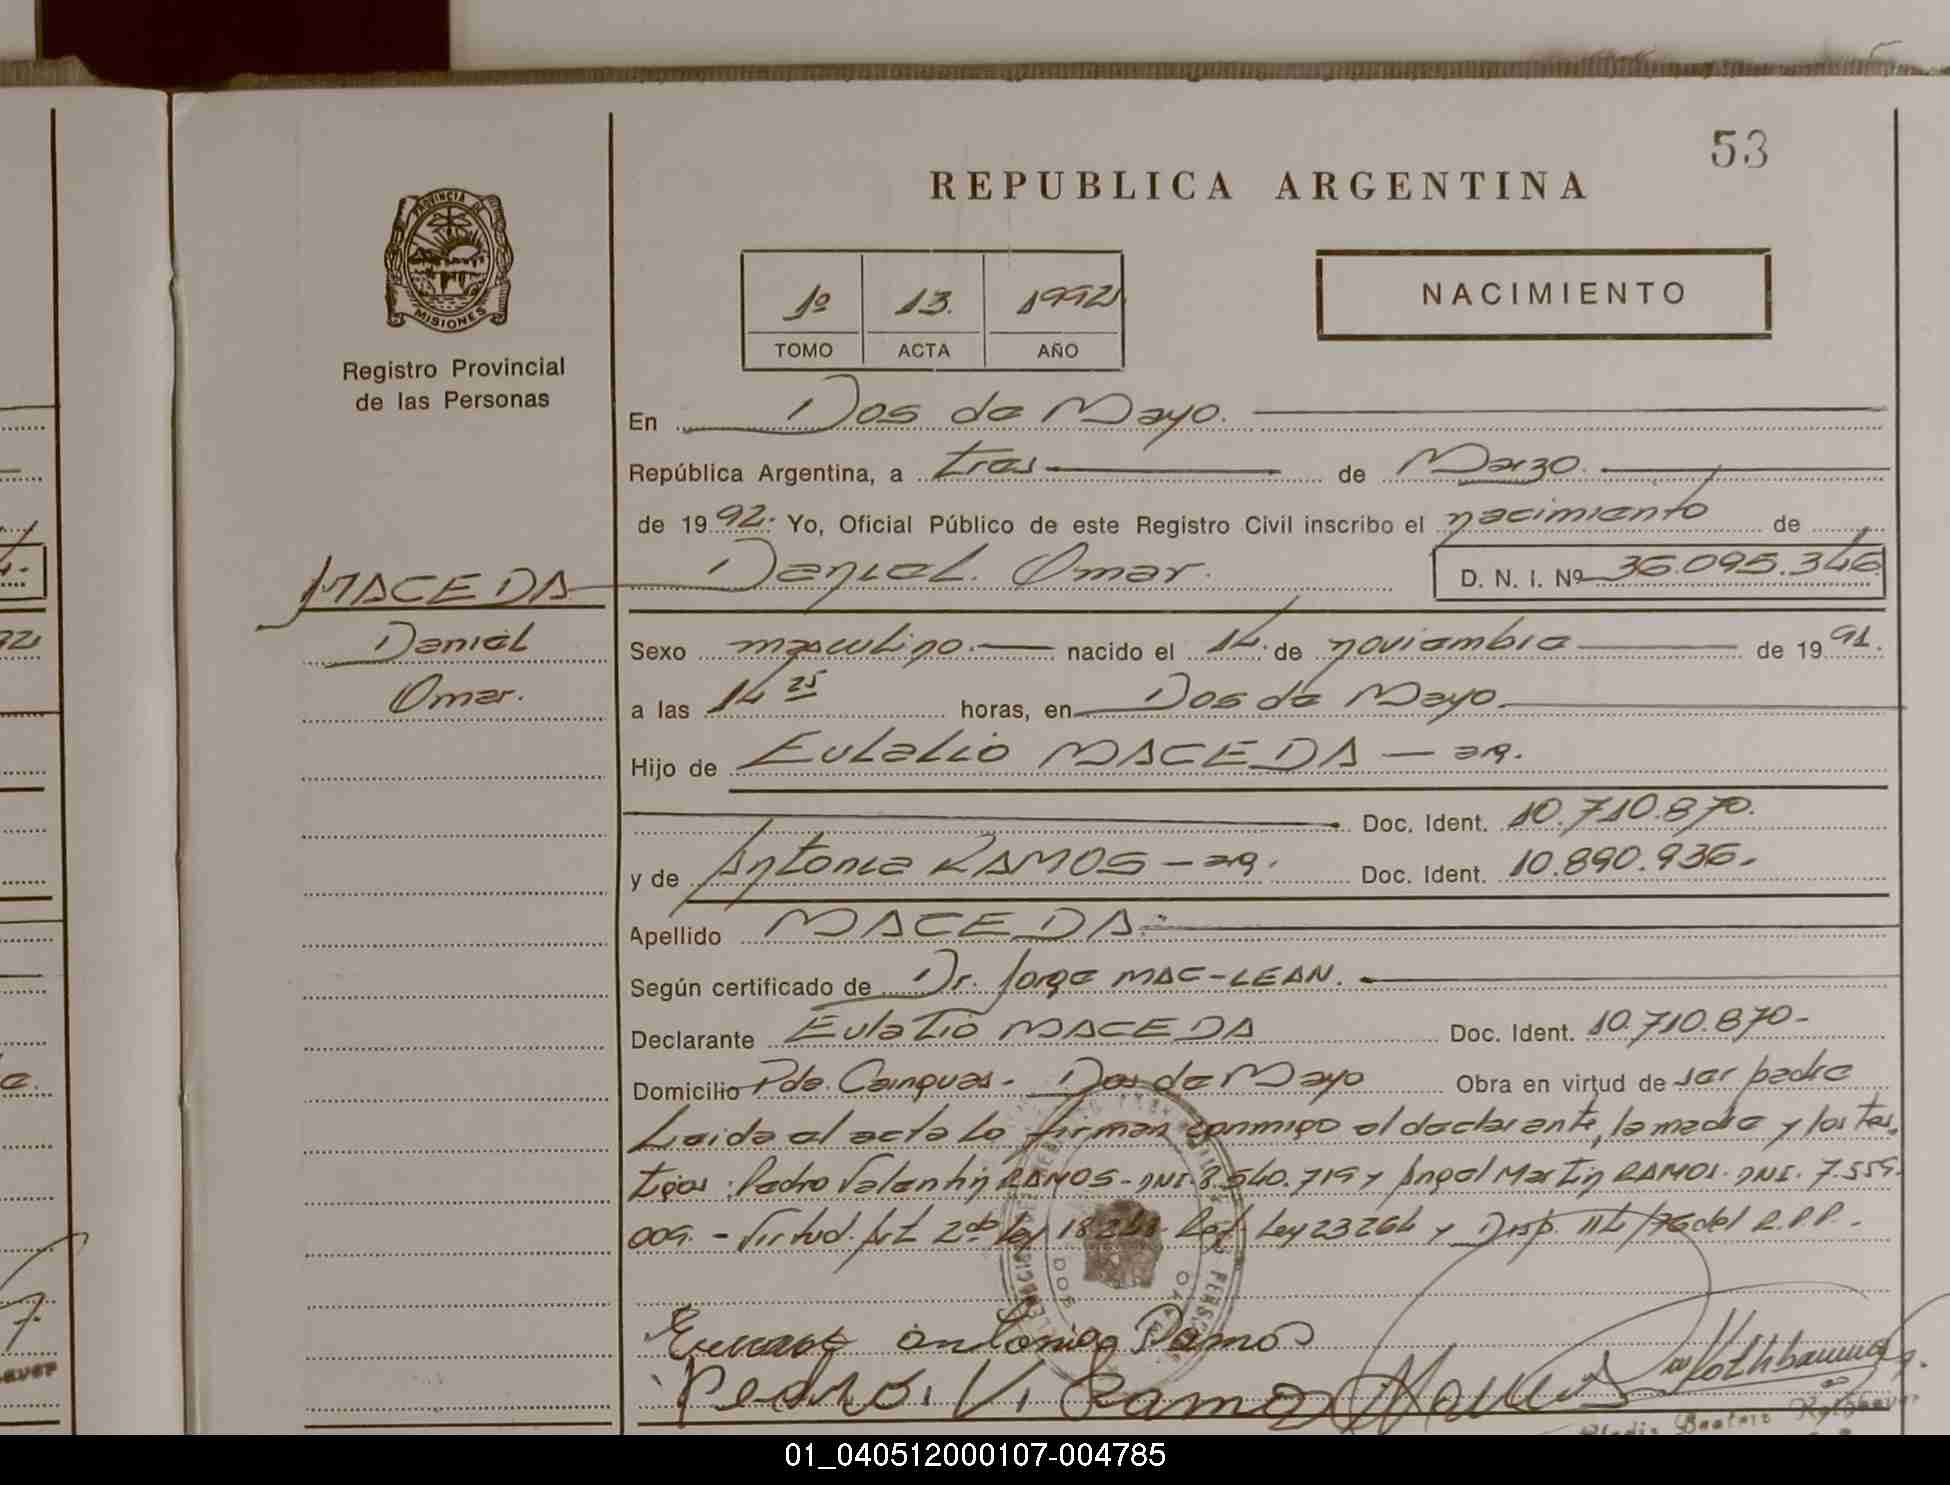 53
REPUBLICA ARGENTINA
PROVINCIA DE
MISIONES
Registro Provincial
de las Personas
1º 13. 1992
TOMO ACTA AÑO
NACIMIENTO
En Dos de Mayo.
República Argentina, a tres de Marzo.
de 1992. Yo, Oficial Público de este Registro Civil inscribo el nacimiento de
MACEDA Daniel Omar. D. N. I. Nº 36.095.346
Daniel
Omar.
Sexo masculino. nacido el 14. de noviembre de 1991.
a las 14 25 horas, en Dos de Mayo.
Hijo de Eulalio MACEDA — ar.
Doc. Ident. 10.710.870.
y de Antonia RAMOS — ar. Doc. Ident. 10.890.936.
Apellido MACEDA.
Según certificado de Dr. Jorge MAC-LEAN.
Declarante Eulalio MACEDA Doc. Ident. 10.710.870-
Domicilio Pdo. Cainguas. Dos de Mayo Obra en virtud de ser padre
Leida el acta lo firman conmigo el declarante, la madre y los tes.
tigos: Pedro Valentin RAMOS - DNI. 8.540.719 y Angel Martin RAMOS. DNI. 7.559.
009. - Virtud. Art 2do Ley 18.248 Ley 23264 y Disp. 114/76 del R.P.P.-
Antonia Ramos
Pedro. V. Ramos
Beatriz
01_040512000107-004785